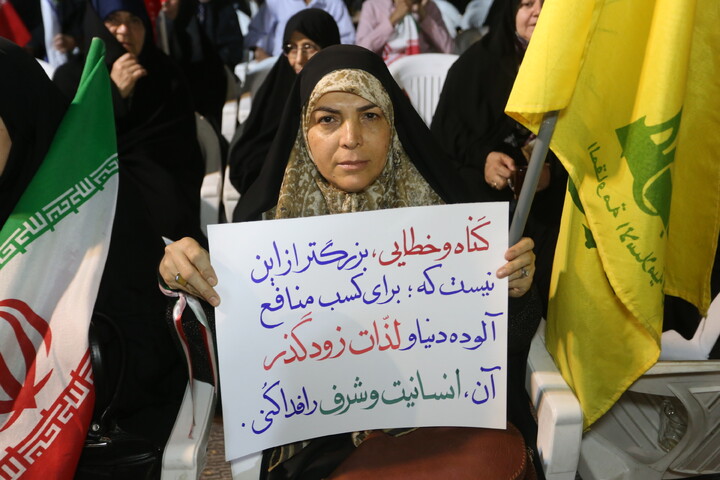 گناه و خطایی، بزرگتر از این
نیست که؛ برای کسب منافع
آلوده دنیا و لذّات زودگذر
آن، انسانیت و شرف را فدا کُنی.